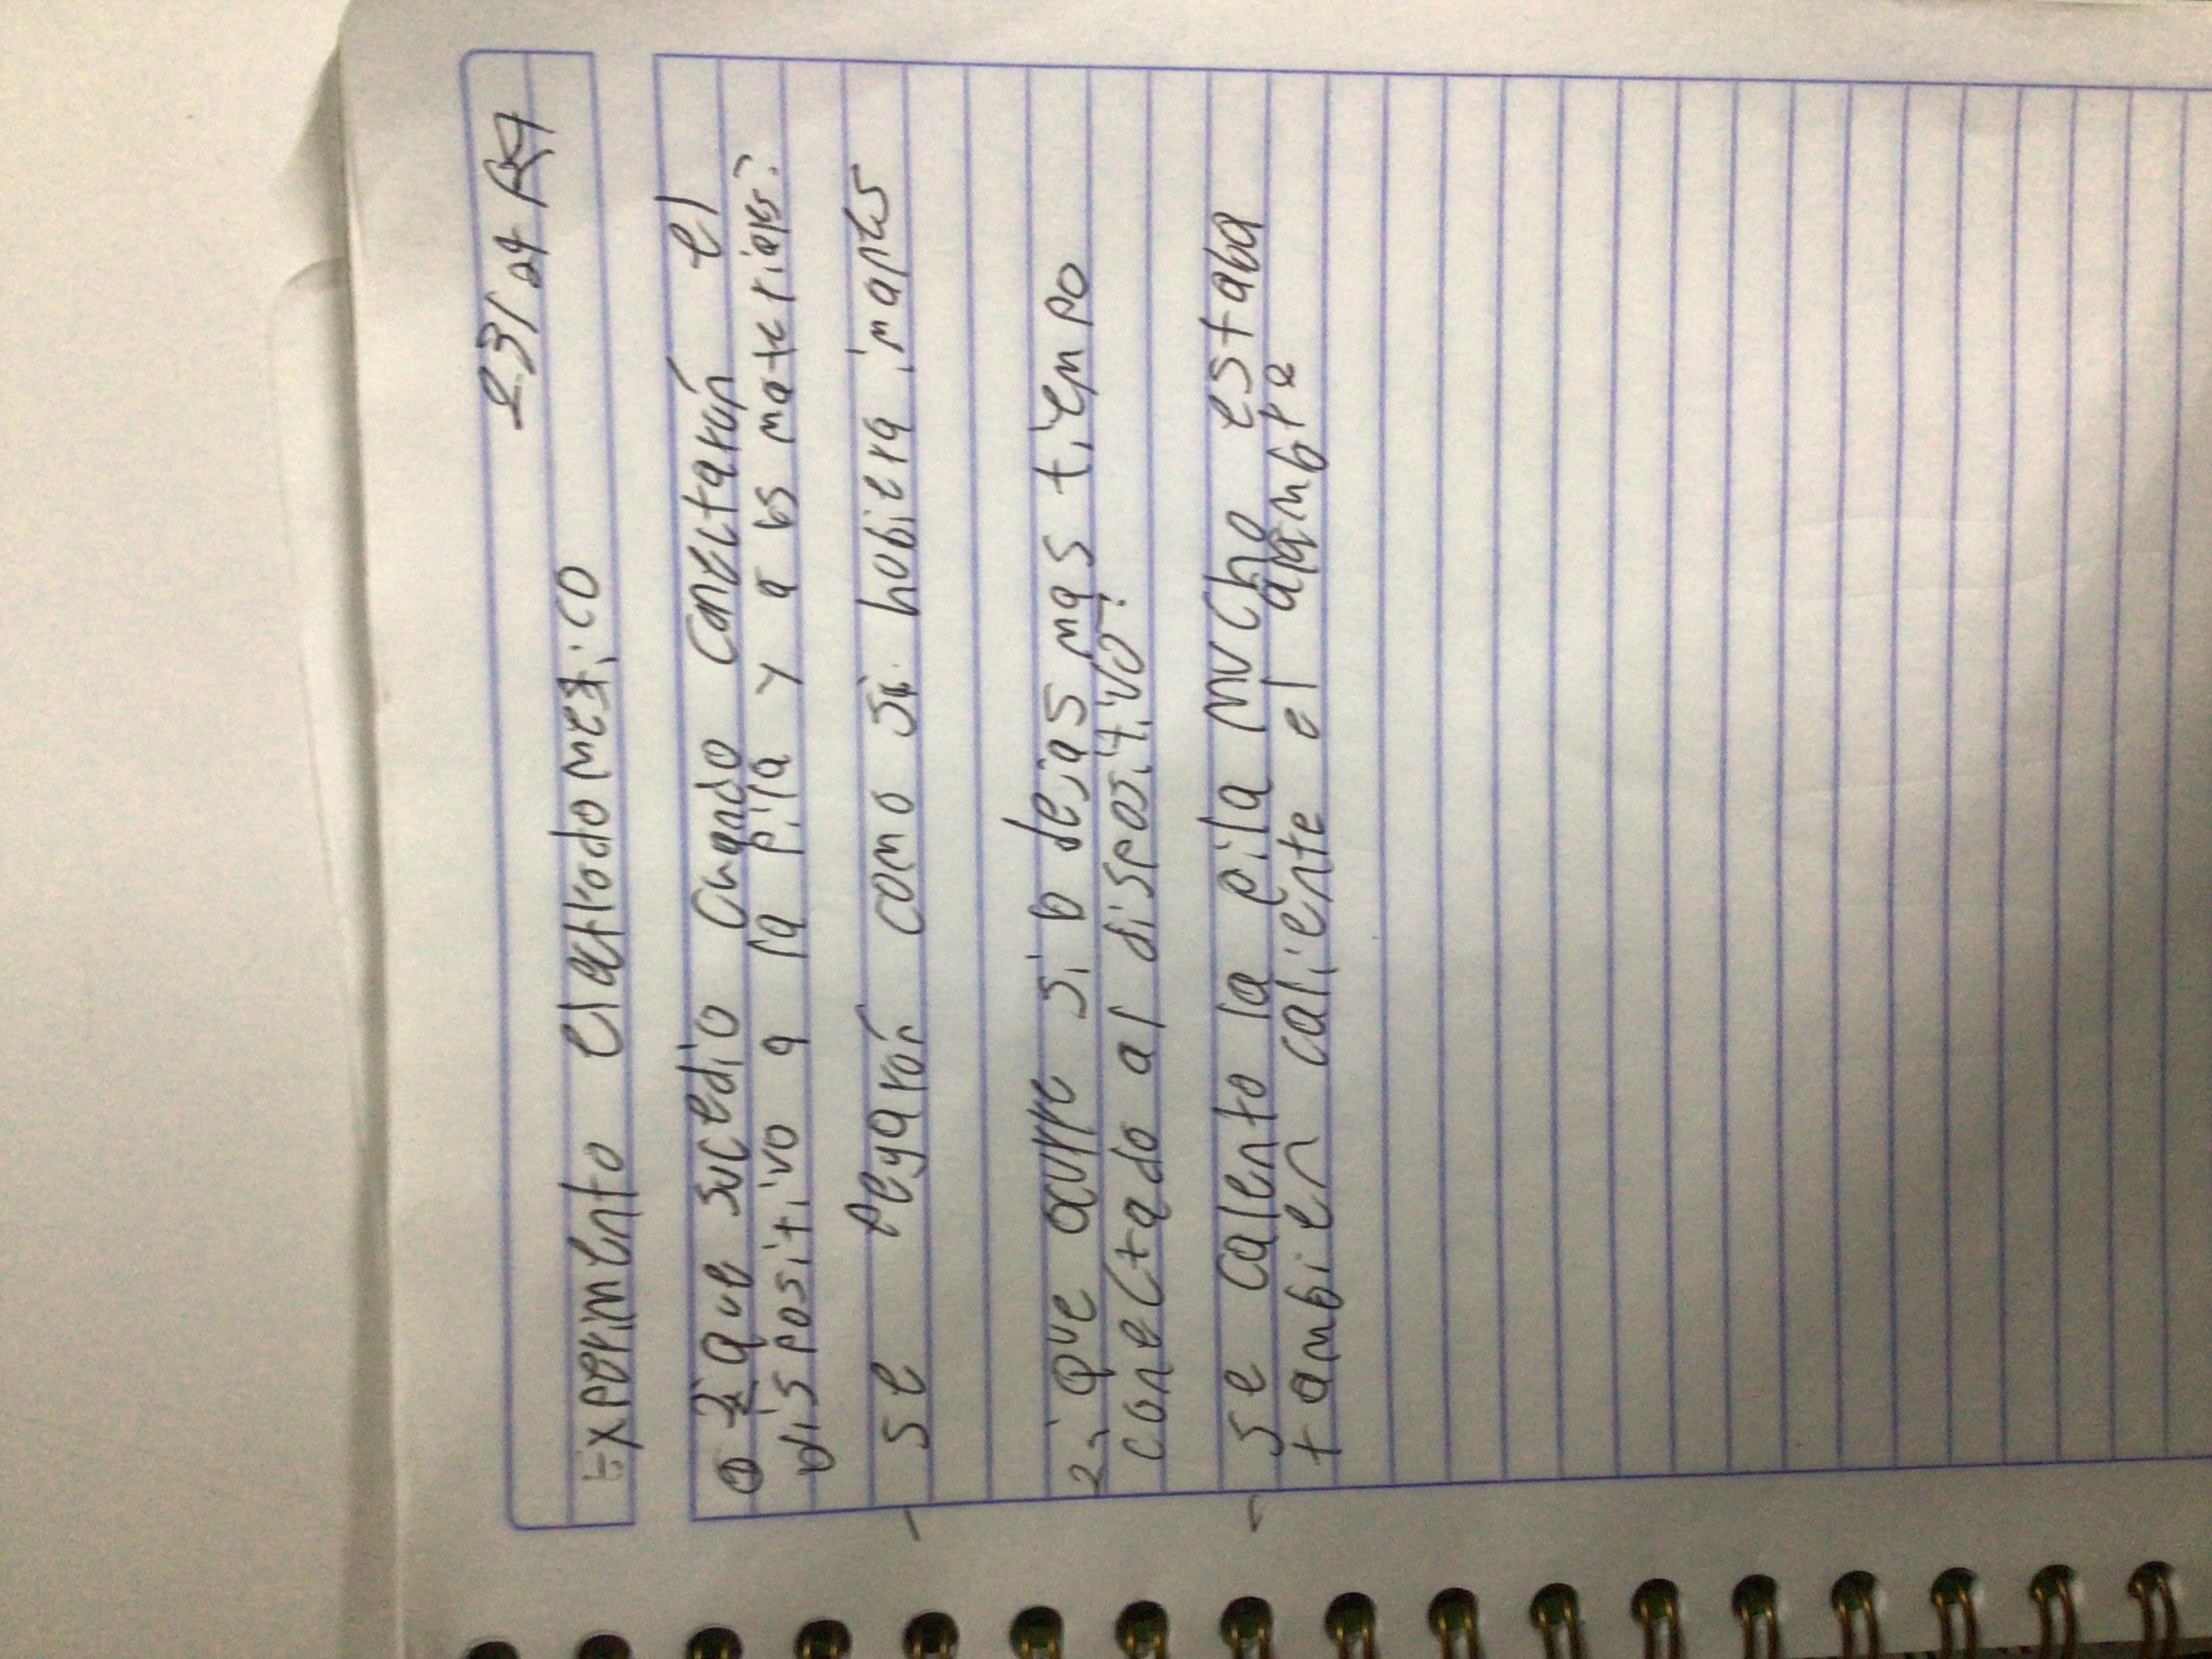 Experimento electrodomestico
① ¿que sucedio cuando conectarón el
dispositivo a la pila y a los materiales?
se pegarón como si hubiera imanes
2. ¿que ocurre si lo dejas mas tiempo
conectado al dispositivo?
se calento la pila mucho estaba
tambien caliente el alambre